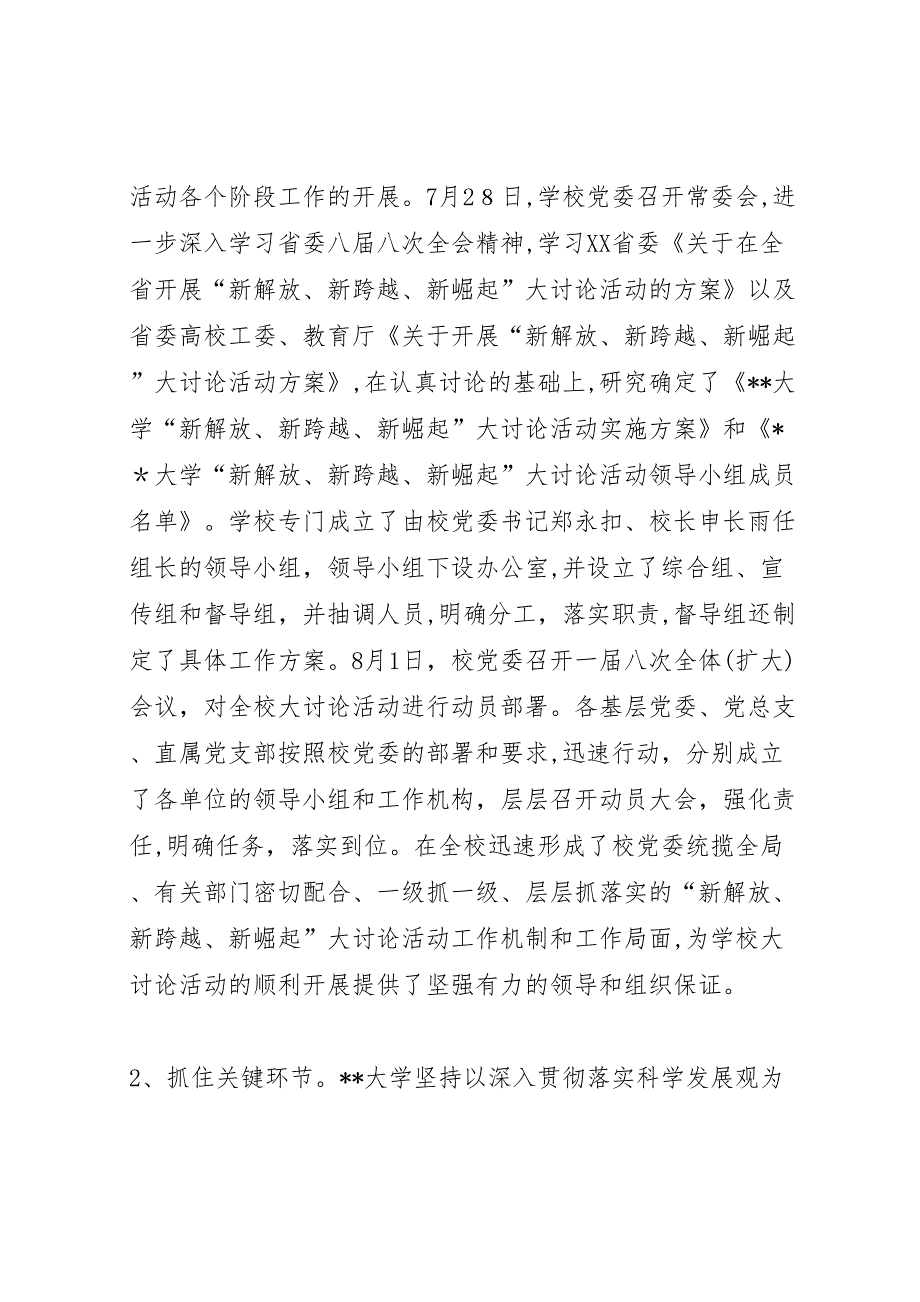 活动各个阶段工作的开展。7月2８日,学校党委召开常委会,进
一步深入学习省委八届八次全会精神,学习XX省委《关于在全
省开展“新解放、新跨越、新崛起”大讨论活动的方案》以及
省委高校工委、教育厅《关于开展“新解放、新跨越、新崛起
”大讨论活动方案》,在认真讨论的基础上,研究确定了《**大
学“新解放、新跨越、新崛起”大讨论活动实施方案》和《*
＊大学“新解放、新跨越、新崛起”大讨论活动领导小组成员
名单》。学校专门成立了由校党委书记郑永扣、校长申长雨任
组长的领导小组，领导小组下设办公室,并设立了综合组、宣
传组和督导组，并抽调人员,明确分工，落实职责,督导组还制
定了具体工作方案。8月1日，校党委召开一届八次全体(扩大)
会议，对全校大讨论活动进行动员部署。各基层党委、党总支
、直属党支部按照校党委的部署和要求,迅速行动，分别成立
了各单位的领导小组和工作机构，层层召开动员大会，强化责
任,明确任务，落实到位。在全校迅速形成了校党委统揽全局
、有关部门密切配合、一级抓一级、层层抓落实的“新解放、
新跨越、新崛起”大讨论活动工作机制和工作局面,为学校大
讨论活动的顺利开展提供了坚强有力的领导和组织保证。
2、抓住关键环节。**大学坚持以深入贯彻落实科学发展观为